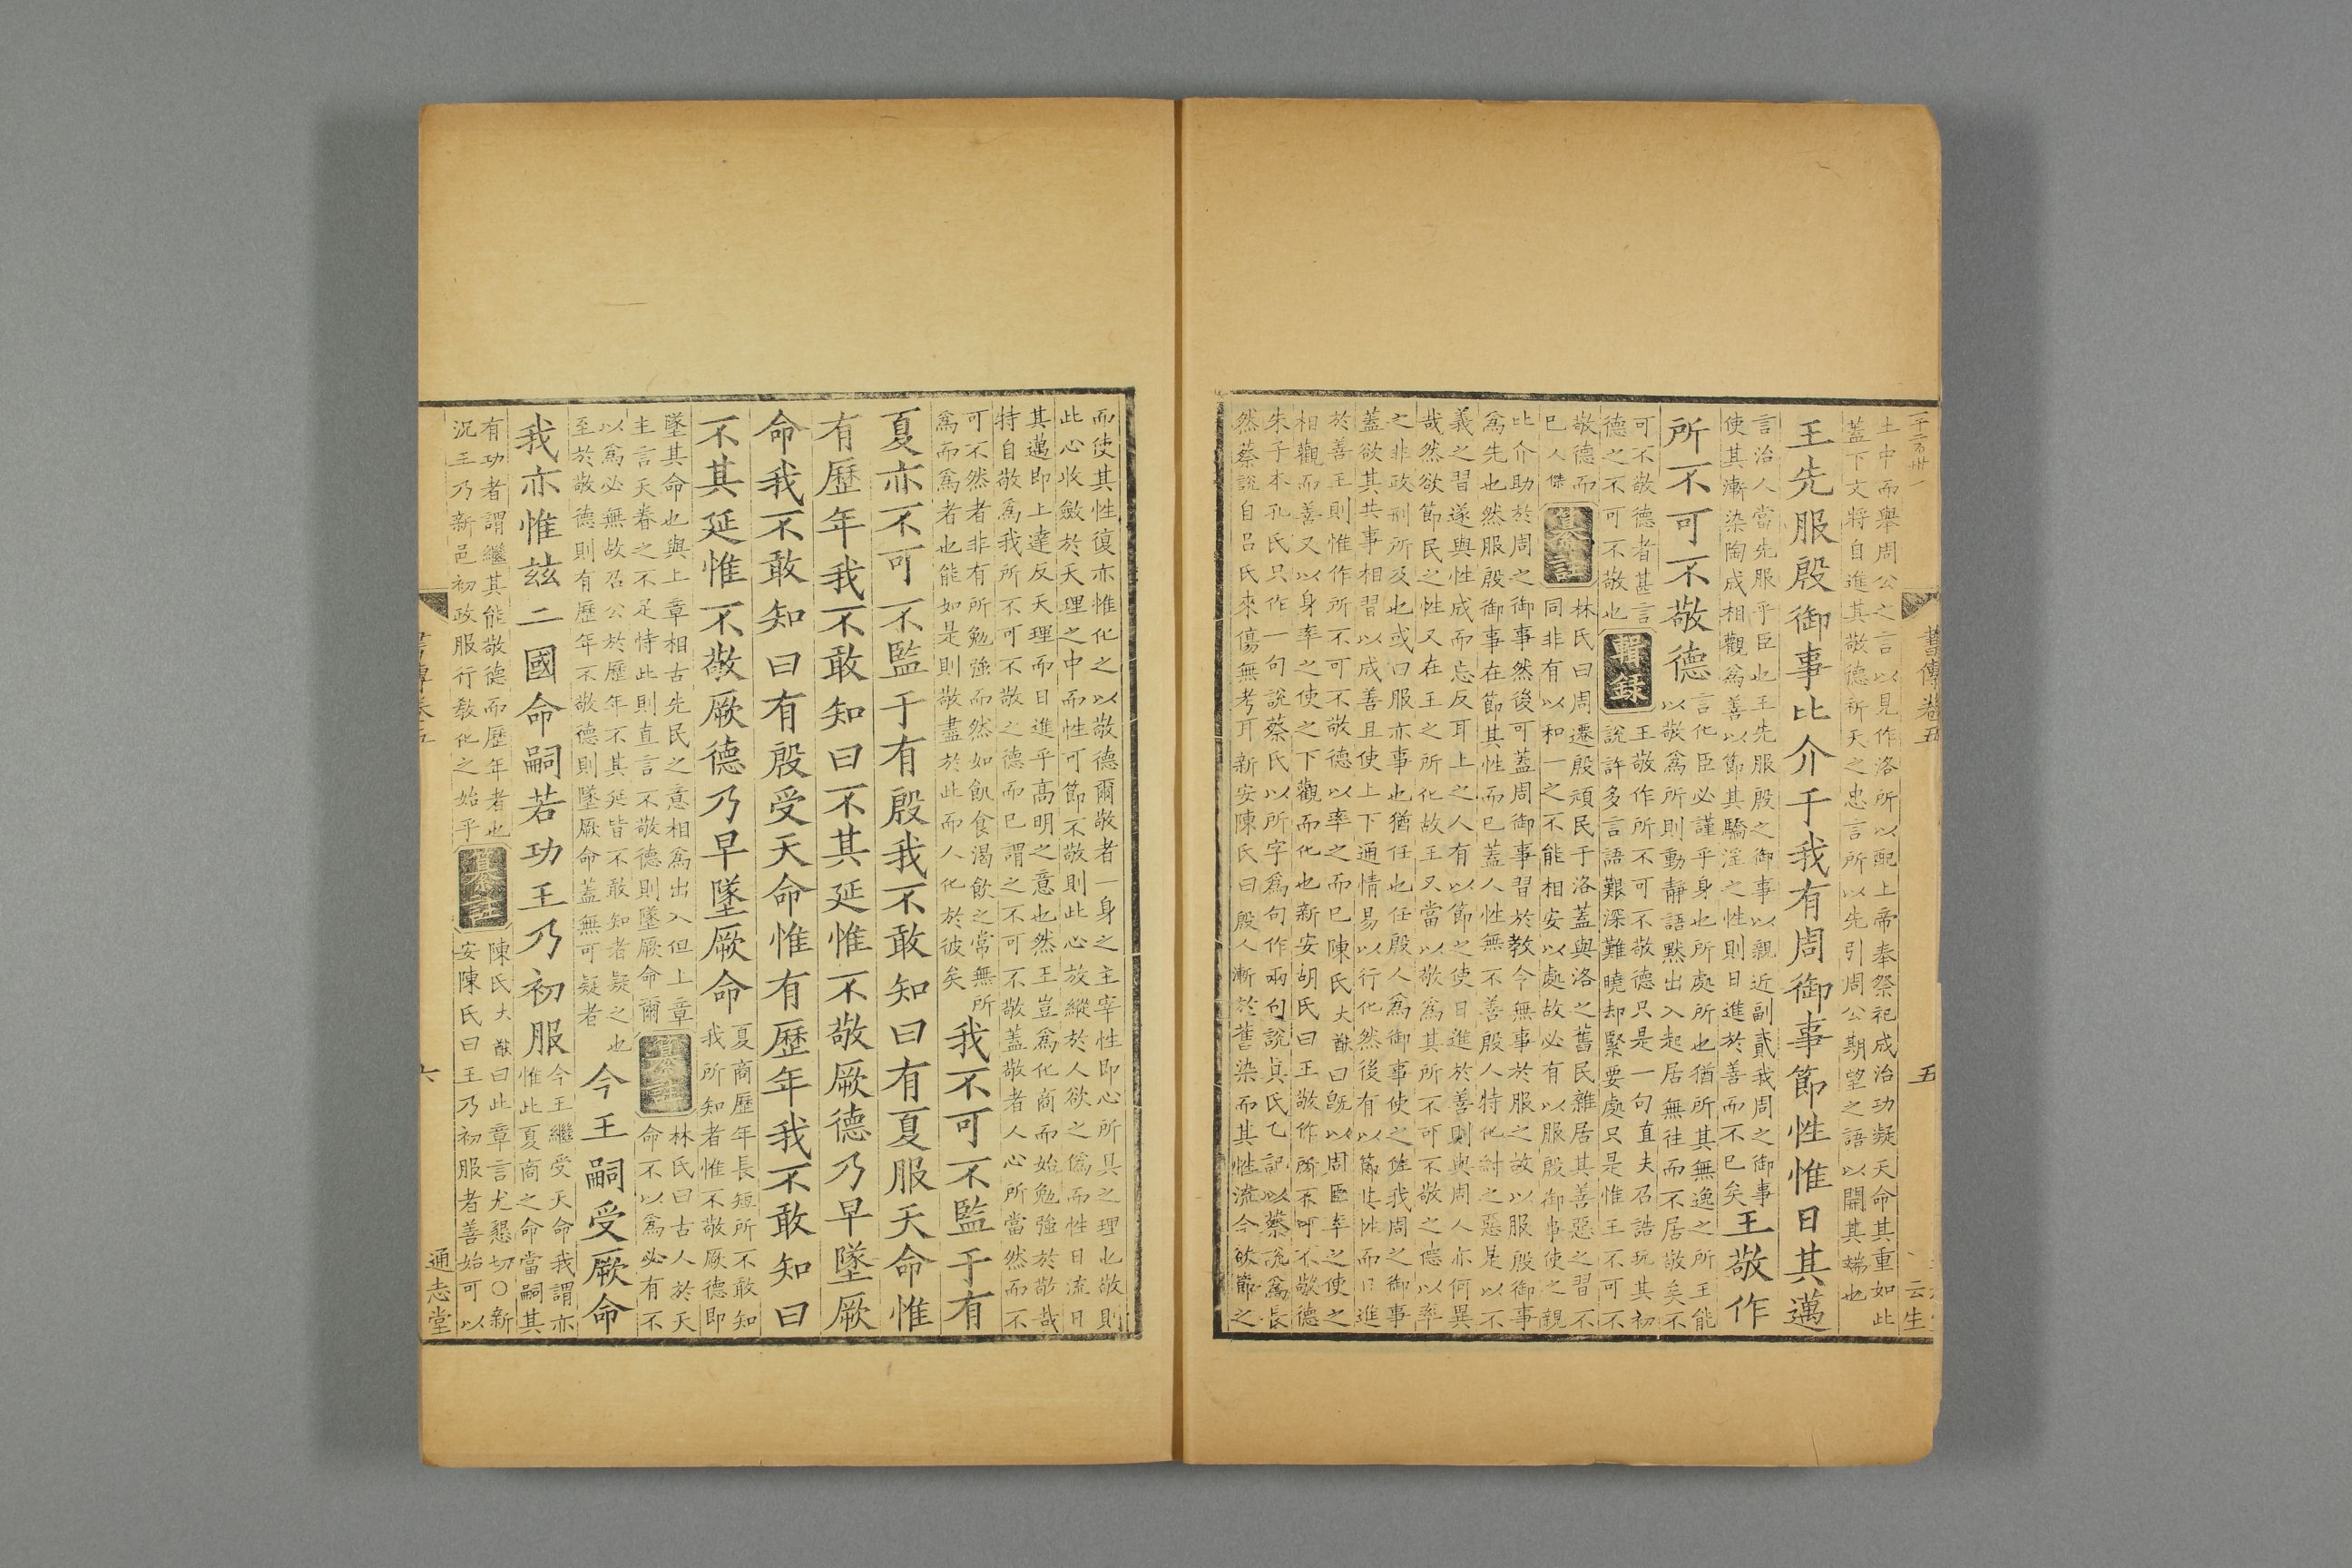 書傳卷五
五
土中而舉周公之言以見作洛所以配上帝奉祭祀成治功凝天命其重如此
蓋下文將自進其敬德祈天之忠言所以先引周公期望之語以開其端也
王先服殷御事比介于我有周御事節性惟日其邁
言治人當先服乎臣也王先服殷之御事以親近副貳我周之御事
使其漸染陶成相觀爲善以節其驕淫之性則日進於善而不已矣
王敬作
所不可不敬德
言化臣必謹乎身也所處所也猶所其無逸之所王能
以敬爲所則動靜語默出入起居無往而不居敬矣不
可不敬德者甚言
德之不可不敬也
輯錄
王敬作所不可不敬德只是一句直夫召誥玩其初
說許多言語艱深難曉却緊要處只是惟王不可不
敬德而
已人傑
纂註
林氏曰周遷殷頑民于洛蓋與洛之舊民雜居其善惡之習不
同非有以和一之不能相安以處故必有以服殷御事使之親
比介助於周之御事然後可蓋周御事習於教令無事於服之故以服殷御事
爲先也然服殷御事在節其性而已蓋人性無不善殷人特化紂之惡是以不
義之習遂與性成而忘反耳上之人有以節之使日進於善則與周人亦何異
哉然欲節民之性又在王之所化故王又當以敬爲其所不可不敬之德以率
之非政刑所及也或曰服亦事也猶任也任殷人爲御事使之佐我周之御事
蓋欲其共事相習以成善且使上下通情易以行化然後有以節其性而日進
於善王則惟作所不可不敬德以率之而已陳氏大猷曰旣以周臣率之使之
相觀而善又以身率之使之下觀而化也新安胡氏曰王敬作所不可不敬德
朱子本孔氏只作一句說蔡氏以所字爲句作兩句說眞氏乙記以蔡說爲長
然蔡說自呂氏來傷無考耳新安陳氏曰殷人漸於舊染而其性流今欲節之
而使其性復亦惟化之以敬德爾敬者一身之主宰性即心所具之理也敬則
此心收斂於天理之中而性可節不敬則此心放縱於人欲之僞而性日流日
其邁即上達反天理而日進乎高明之意也然王豈爲化商而始勉強於敬哉
特自敬爲我所不可不敬之德而已謂之不可不敬蓋敬者人心所當然而不
可不然者非有所勉強而然如飢食渴飮之常無所
爲而爲者也能如是則敬盡於此而人化於彼矣
我不可不監于有
夏亦不可不監于有殷我不敢知曰有夏服天命惟
有歷年我不敢知曰不其延惟不敬厥德乃早墜厥
命我不敢知曰有殷受天命惟有歷年我不敢知曰
不其延惟不敬厥德乃早墜厥命
夏商歷年長短所不敢知
我所知者惟不敬厥德即
墜其命也與上章相古先民之意相爲出入但上章
主言天眷之不足恃此則直言不敬德則墜厥命爾
纂註
林氏曰古人於天
命不以爲必有不
以爲必無故召公於歷年不其延皆不敢知者疑之也
至於敬德則有歷年不敬德則墜厥命蓋無可疑者
今王嗣受厥命
我亦惟茲二國命嗣若功王乃初服
今王繼受天命我謂亦
惟此夏商之命當嗣其
有功者謂繼其能敬德而歷年者也
況王乃新邑初政服行教化之始乎
纂註
陳氏大猷曰此章言尤懇切〇新
安陳氏曰王乃初服者善始可以
六
通志堂